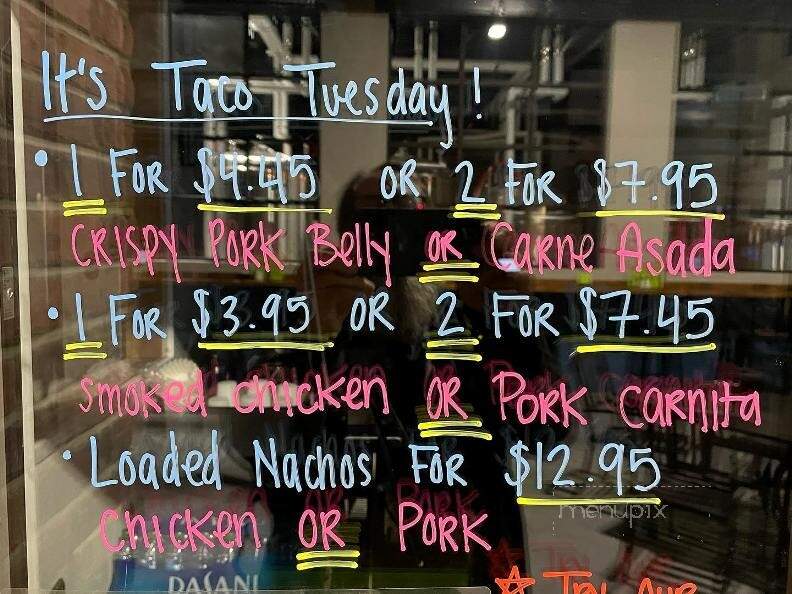 It's Taco Tuesday!
• 1 FOR $4.45 OR 2 FOR $7.95
CRISPY PORK Belly OR CARNE Asada
• 1 FOR $3.95 OR 2 FOR $7.45
smoked chicken OR PORK CARNITA
• Loaded Nachos FOR $12.95
menupix
Chicken OR PORK
DASANI
☆ Try our